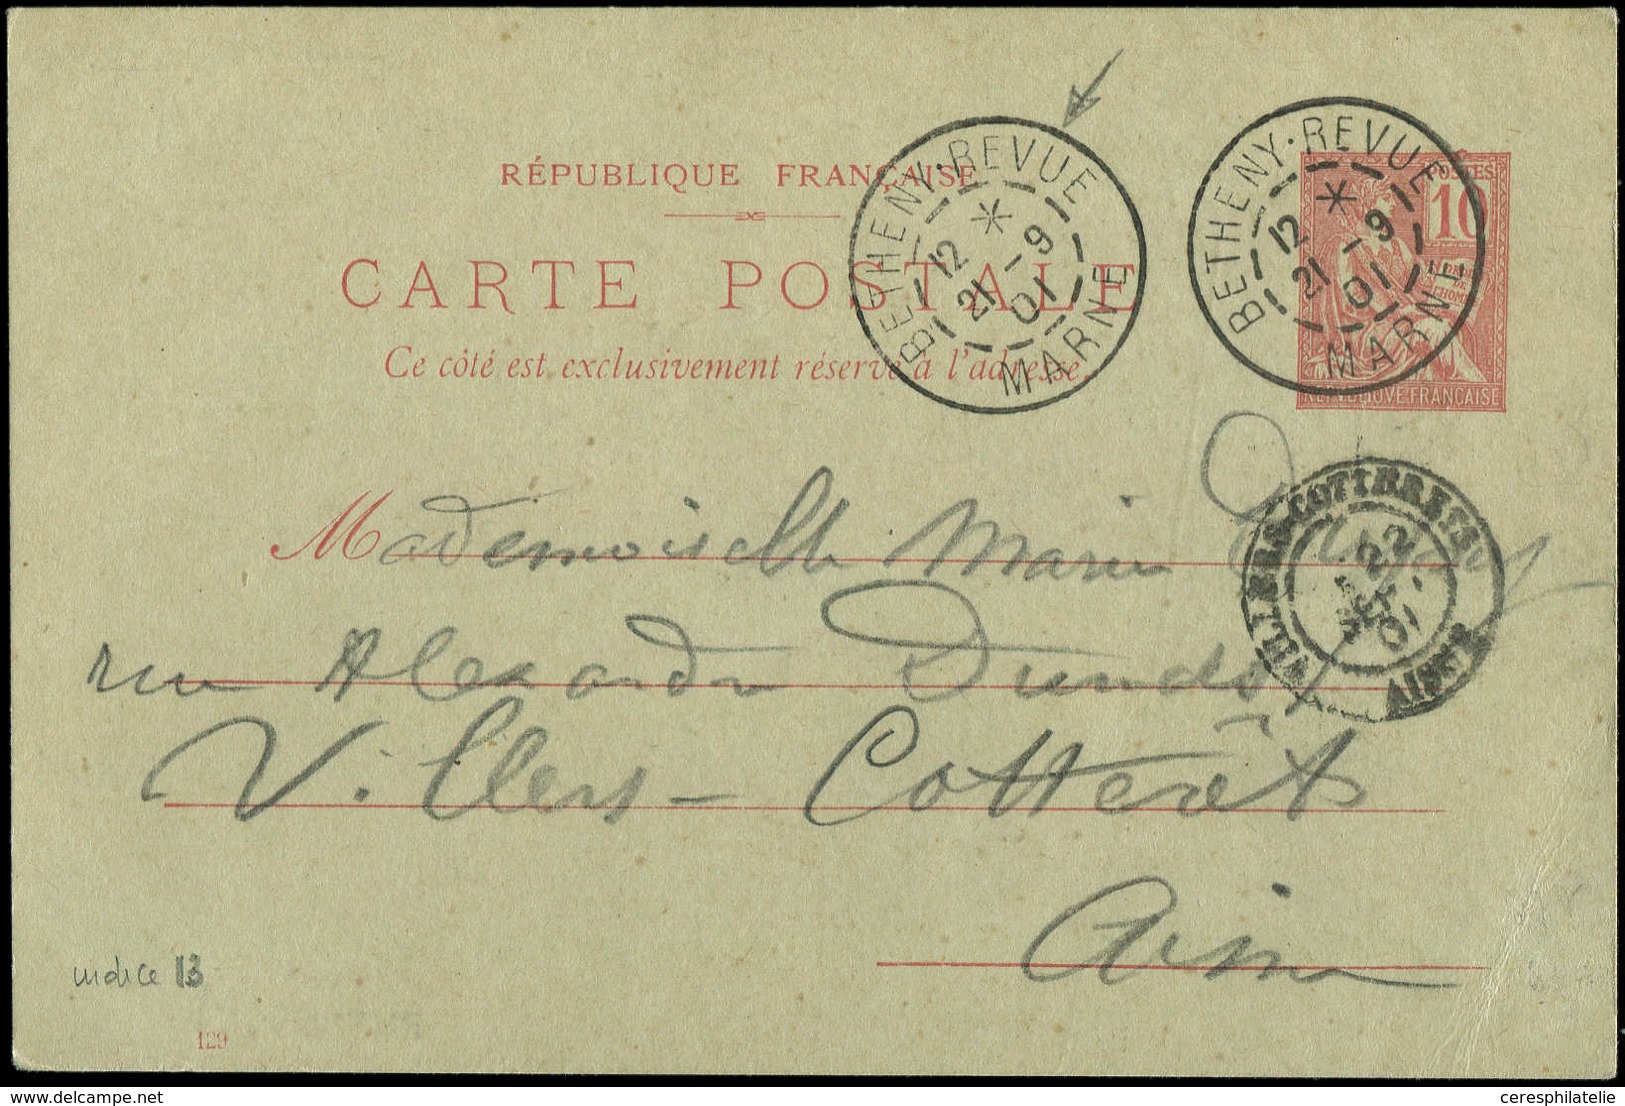 RÉPUBLIQUE FRANÇAISE
CARTE POSTALE
Ce côté est exclusivement réservé à l'adresse.
BETHENY·REVUE
12
21 -9
01
MARNE
BETHENY·REVUE
12
21 -9
01
MARNE
POSTES
10
REPUBLIQUE FRANÇAISE
VILLERS-COTTERETS
22
SEPT
01
AISNE
Mademoiselle Marie
rue Alexandre Dumas
Villers-Cotterêts
Aisne
indice 13
129
ceresphilatelie